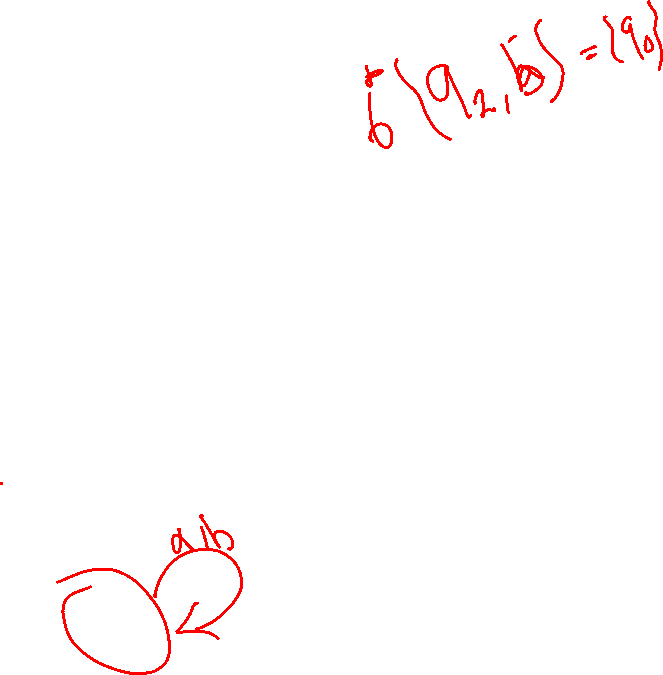 δ(q₂, b) = {q₀}
a,b